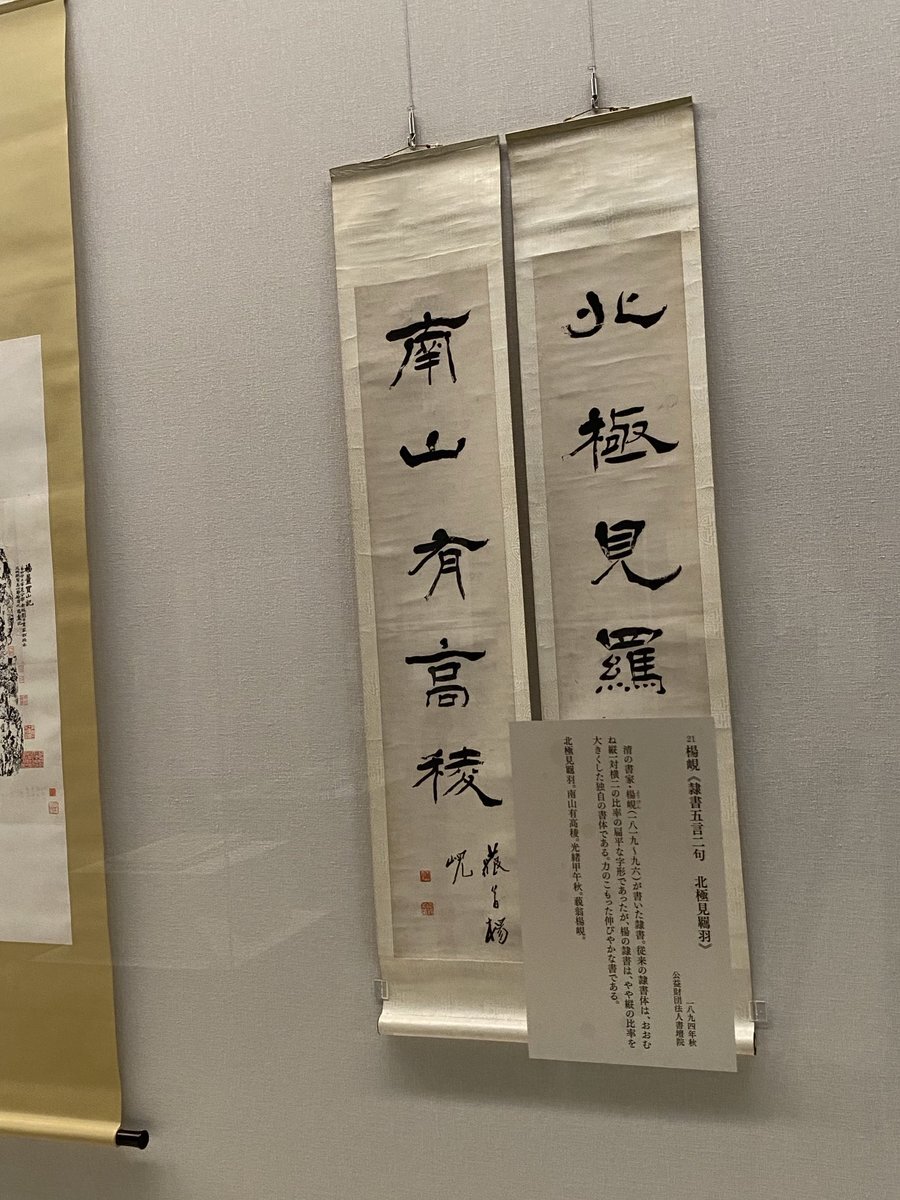 北極見羈
南山有高稜
藐翁楊
峴
21 楊峴《隷書五言二句 北極見羈羽》
一八九四年秋
公益財団法人書壇院
清の書家・楊峴(一八一九〜九六)が書いた隷書。従来の隷書体は、おおむ
ね縦一対横二の比率の扁平な字形であったが、楊の隷書は、やや縦の比率を
大きくした独自の書体である。力のこもった伸びやかな書である。
北極見羈羽。南山有高稜。光緒甲午秋。藐翁楊峴。